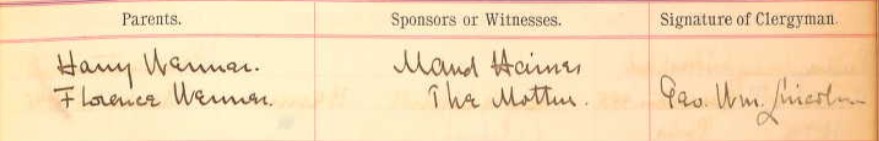 Parents. Sponsors or Witnesses. Signature of Clergyman.
Harry Wanner. Maud Haines
Florence Wanner. The Mother. Geo. Wm. Lincoln